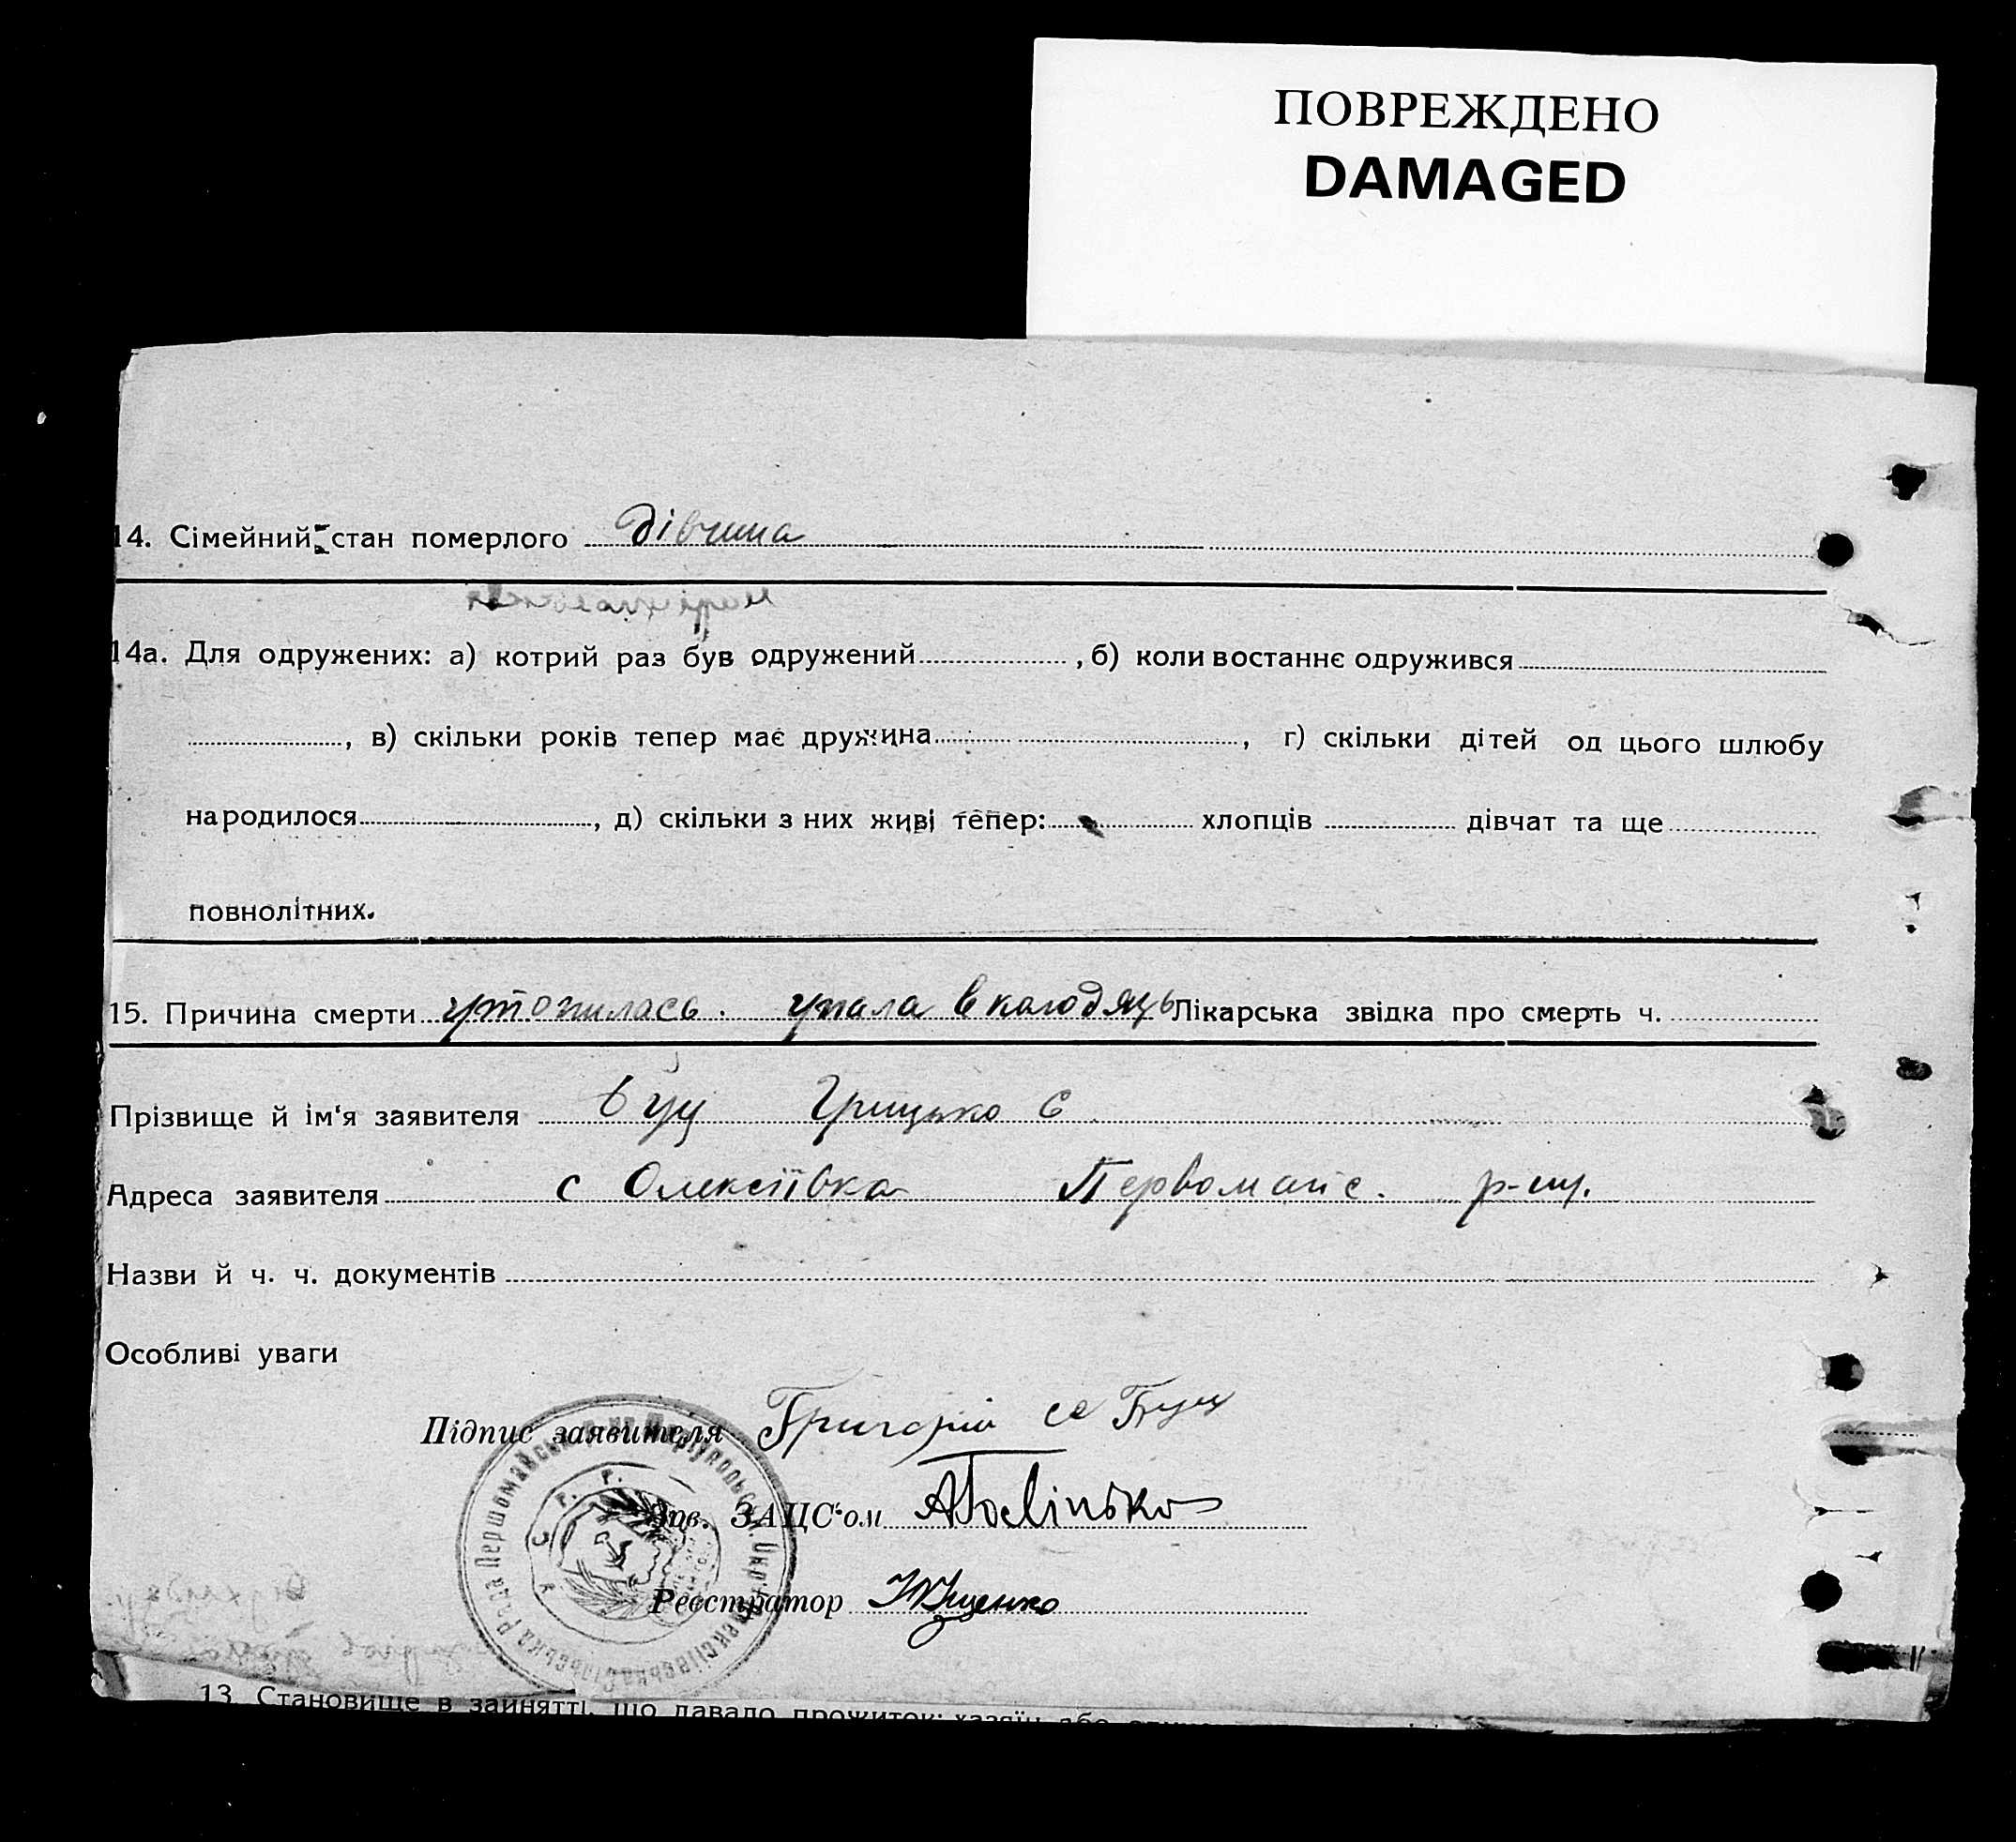 ПОВРЕЖДЕНО
DAMAGED
14. Сімейний стан померлого дівчина
14а. Для одружених: а) котрий раз був одружений , б) коли востаннє одружився
, в) скільки років тепер має дружина , г) скільки дітей од цього шлюбу
народилося , д) скільки з них живі тепер: хлопців дівчат та ще
повнолітних.
15. Причина смерти утопилась. упала в колодязь Лікарська звідка про смерть ч.
Прізвище й ім'я заявителя Буц Грицько С
Адреса заявителя с Олексіївка Первомайс. р-ну.
Назви й ч. ч. документів
Особливі уваги
Підпис заявителя Григорій Буц
Зав. ЗАЦС'ом
Реєстратор
У. С. Р. Р.
13. Становище в занятті, що давало прожиток: хазяїн або